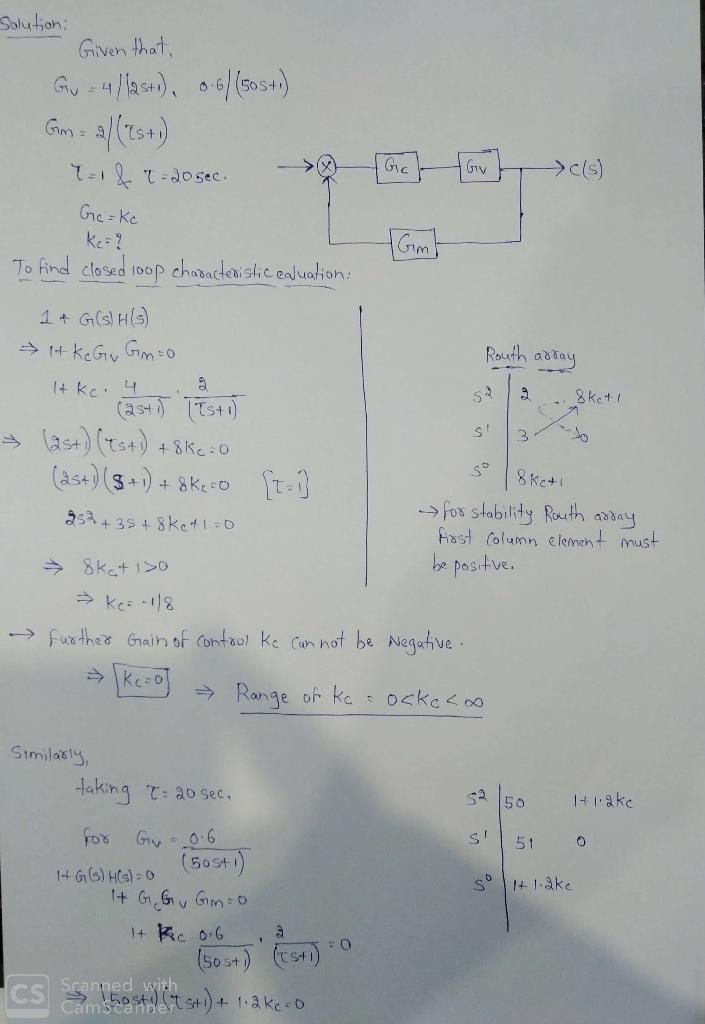 Solution:
Given that,
Gv = 4/(2s+1), 0.6/(50s+1)
Gm = 2/(τs+1)
τ=1 & τ=20sec.
Gc = Kc
Kc = ?
X Gc Gv C(s)
Gm
To find closed loop characteristic eqluation:
1 + G(s) H(s)
⇒ 1+ KcGv Gm=0
1+ Kc. 4/(2s+1) . 2/(τs+1)
⇒ (2s+1)(τs+1) + 8Kc=0
(2s+1)(s+1) + 8Kc=0 [τ=1]
2s² + 3s + 8Kc+1=0
⇒ 8Kc+1>0
⇒ Kc= -1/8
Routh array
s² 2 8Kc+1
s¹ 3 0
s⁰ 8Kc+1
→ for stability Routh array
first column element must
be positive.
→ further Gain of control Kc can not be Negative.
⇒ Kc=0 ⇒ Range of Kc = 0<Kc<∞
Similarly,
taking τ= 20 sec.
for Gv = 0.6/(50s+1)
1+ G(s) H(s)=0
1+ GcGv Gm=0
1+ Kc 0.6/(50s+1) . 2/(τs+1) =0
⇒ (50s+1)(τs+1) + 1.2Kc=0
s² 50 1+1.2Kc
s¹ 51 0
s⁰ 1+1.2Kc
CS Scanned with
CamScanner